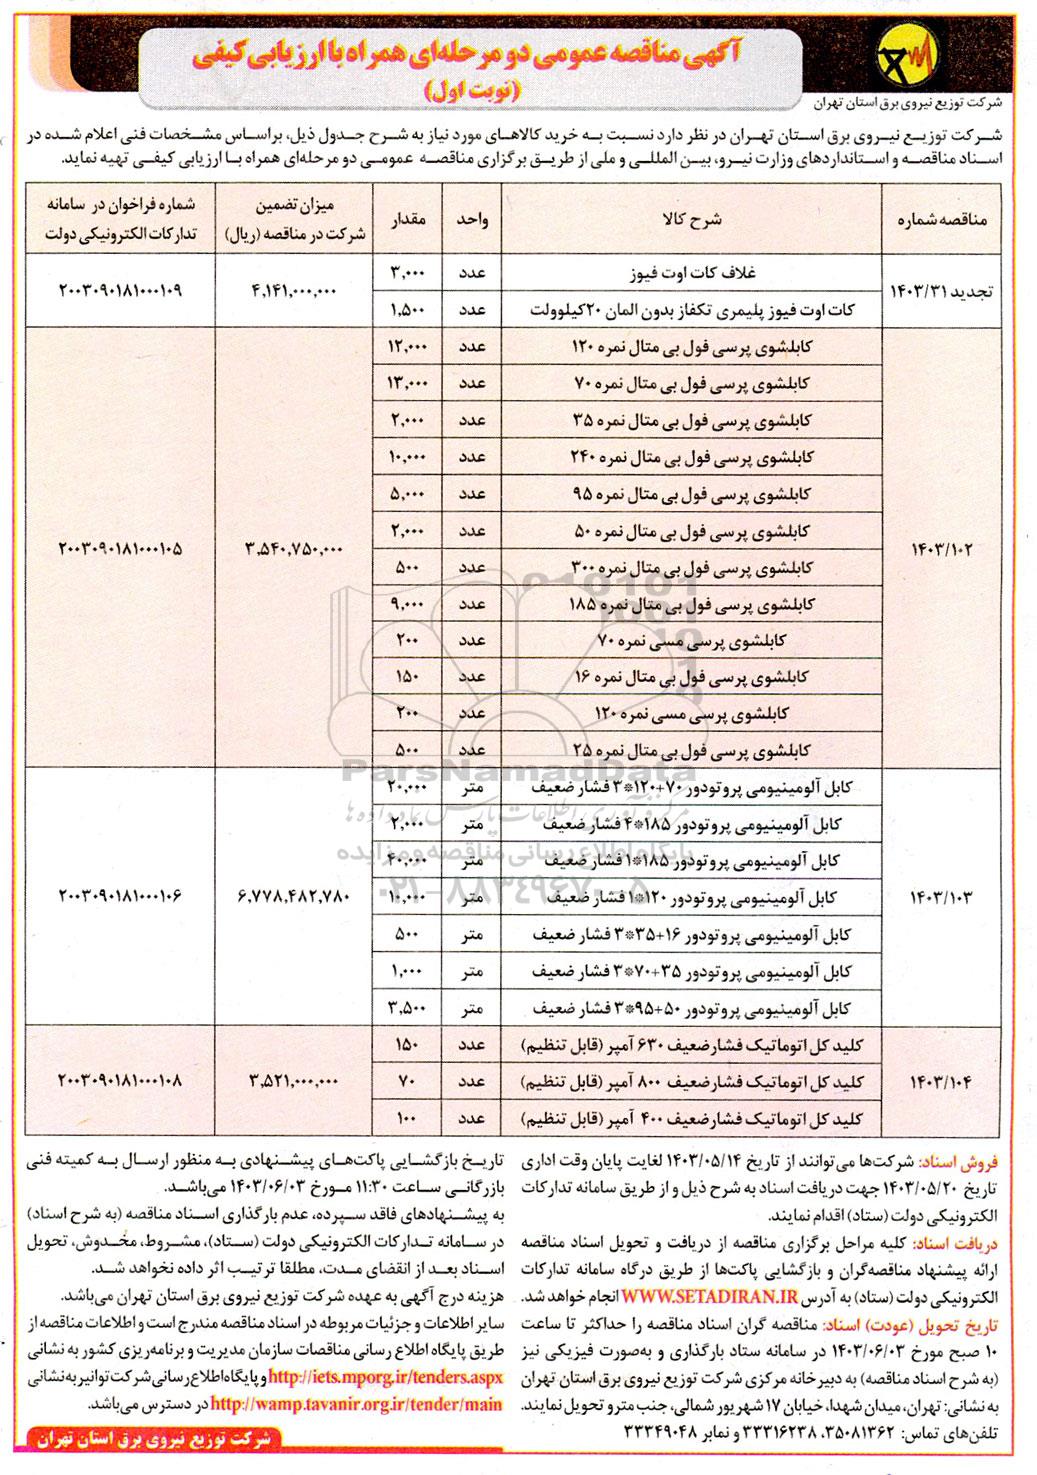 آگهی مناقصه عمومی دو مرحله‌ای همراه با ارزیابی کیفی
(نوبت اول)
شرکت توزیع نیروی برق استان تهران
شرکت توزیع نیروی برق استان تهران در نظر دارد نسبت به خرید کالاهای مورد نیاز به شرح جدول ذیل، براساس مشخصات فنی اعلام شده در
اسناد مناقصه و استانداردهای وزارت نیرو، بین المللی و ملی از طریق برگزاری مناقصه عمومی دو مرحله‌ای همراه با ارزیابی کیفی تهیه نماید.
مناقصه شماره | شرح کالا | واحد | مقدار | میزان تضمین شرکت در مناقصه (ریال) | شماره فراخوان در سامانه تدارکات الکترونیکی دولت
تجدید ۱۴۰۳/۳۱ | غلاف کات اوت فیوز | عدد | ۳,۰۰۰ | ۴,۱۴۱,۰۰۰,۰۰۰ | ۲۰۰۳۰۹۰۱۸۱۰۰۰۱۰۹
کات اوت فیوز پلیمری تکفاز بدون المان ۲۰کیلوولت | عدد | ۱,۵۰۰
۱۴۰۳/۱۰۲ | کابلشوی پرسی فول بی متال نمره ۱۲۰ | عدد | ۱۲,۰۰۰ | ۳,۵۴۰,۷۵۰,۰۰۰ | ۲۰۰۳۰۹۰۱۸۱۰۰۰۱۰۵
کابلشوی پرسی فول بی متال نمره ۷۰ | عدد | ۱۳,۰۰۰
کابلشوی پرسی فول بی متال نمره ۳۵ | عدد | ۲,۰۰۰
کابلشوی پرسی فول بی متال نمره ۲۴۰ | عدد | ۱۰,۰۰۰
کابلشوی پرسی فول بی متال نمره ۹۵ | عدد | ۵,۰۰۰
کابلشوی پرسی فول بی متال نمره ۵۰ | عدد | ۲,۰۰۰
کابلشوی پرسی فول بی متال نمره ۳۰۰ | عدد | ۵۰۰
کابلشوی پرسی فول بی متال نمره ۱۸۵ | عدد | ۹,۰۰۰
کابلشوی پرسی مسی نمره ۷۰ | عدد | ۲۰۰
کابلشوی پرسی فول بی متال نمره ۱۶ | عدد | ۱۵۰
کابلشوی پرسی مسی نمره ۱۲۰ | عدد | ۲۰۰
کابلشوی پرسی فول بی متال نمره ۲۵ | عدد | ۵۰۰
۱۴۰۳/۱۰۳ | کابل آلومینیومی پروتودور ۷۰+۱۲۰*۳ فشار ضعیف | متر | ۲۰,۰۰۰ | ۶,۷۷۸,۴۸۲,۷۸۰ | ۲۰۰۳۰۹۰۱۸۱۰۰۰۱۰۶
کابل آلومینیومی پروتودور ۱۸۵*۴ فشار ضعیف | متر | ۲,۰۰۰
کابل آلومینیومی پروتودور ۱۸۵*۱ فشار ضعیف | متر | ۴۰,۰۰۰
کابل آلومینیومی پروتودور ۱۲۰*۱ فشار ضعیف | متر | ۱۰,۰۰۰
کابل آلومینیومی پروتودور ۱۶+۳۵*۳ فشار ضعیف | متر | ۵۰۰
کابل آلومینیومی پروتودور ۳۵+۷۰*۳ فشار ضعیف | متر | ۱,۰۰۰
کابل آلومینیومی پروتودور ۵۰+۹۵*۳ فشار ضعیف | متر | ۳,۵۰۰
۱۴۰۳/۱۰۴ | کلید کل اتوماتیک فشارضعیف ۶۳۰ آمپر (قابل تنظیم) | عدد | ۱۵۰ | ۳,۵۲۱,۰۰۰,۰۰۰ | ۲۰۰۳۰۹۰۱۸۱۰۰۰۱۰۸
کلید کل اتوماتیک فشارضعیف ۸۰۰ آمپر (قابل تنظیم) | عدد | ۷۰
کلید کل اتوماتیک فشارضعیف ۴۰۰ آمپر (قابل تنظیم) | عدد | ۱۰۰
ParsNamadData
مرکز فرآوری اطلاعات پارس نماد داده‌ها
پایگاه اطلاع رسانی مناقصه و مزایده
۰۲۱-۸۸۳۴۹۶۷۰-۵
فروش اسناد: شرکت‌ها می‌توانند از تاریخ ۱۴۰۳/۰۵/۱۴ لغایت پایان وقت اداری
تاریخ ۱۴۰۳/۰۵/۲۰ جهت دریافت اسناد به شرح ذیل و از طریق سامانه تدارکات
الکترونیکی دولت (ستاد) اقدام نمایند.
دریافت اسناد: کلیه مراحل برگزاری مناقصه از دریافت و تحویل اسناد مناقصه
ارائه پیشنهاد مناقصه‌گران و بازگشایی پاکت‌ها از طریق درگاه سامانه تدارکات
الکترونیکی دولت (ستاد) به آدرس WWW.SETADIRAN.IR انجام خواهد شد.
تاریخ تحویل (عودت) اسناد: مناقصه گران اسناد مناقصه را حداکثر تا ساعت
۱۰ صبح مورخ ۱۴۰۳/۰۶/۰۳ در سامانه ستاد بارگذاری و به‌صورت فیزیکی نیز
(به شرح اسناد مناقصه) به دبیرخانه مرکزی شرکت توزیع نیروی برق استان تهران
به نشانی: تهران، میدان شهدا، خیابان ۱۷ شهریور شمالی، جنب مترو تحویل نمایند.
تلفن‌های تماس: ۳۵۰۸۱۳۶۲، ۳۳۳۱۶۲۳۸ و نمابر ۳۳۳۴۹۰۴۸
تاریخ بازگشایی پاکت‌های پیشنهادی به منظور ارسال به کمیته فنی
بازرگانی ساعت ۱۱:۳۰ مورخ ۱۴۰۳/۰۶/۰۳ می‌باشد.
به پیشنهادهای فاقد سپرده، عدم بارگذاری اسناد مناقصه (به شرح اسناد)
در سامانه تدارکات الکترونیکی دولت (ستاد)، مشروط، مخدوش، تحویل
اسناد بعد از انقضای مدت، مطلقا ترتیب اثر داده نخواهد شد.
هزینه درج آگهی به عهده شرکت توزیع نیروی برق استان تهران می‌باشد.
سایر اطلاعات و جزئیات مربوطه در اسناد مناقصه مندرج است و اطلاعات مناقصه از
طریق پایگاه اطلاع رسانی مناقصات سازمان مدیریت و برنامه‌ریزی کشور به نشانی
http://iets.mporg.ir/tenders.aspx و پایگاه اطلاع رسانی شرکت توانیر به نشانی
http://wamp.tavanir.org.ir/tender/main در دسترس می‌باشد.
شرکت توزیع نیروی برق استان تهران